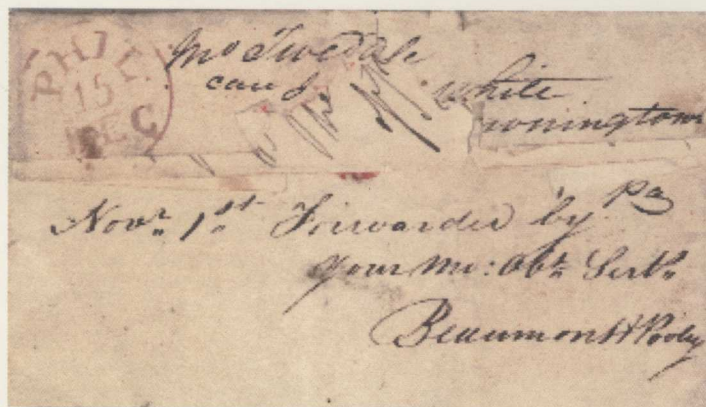 PHIL
15
DEC
Mo Twedale
care of white
onington
Pa
Novr. 1st Forwarded by
your Mo: Obt. Servts.
Beaumont & Pooley